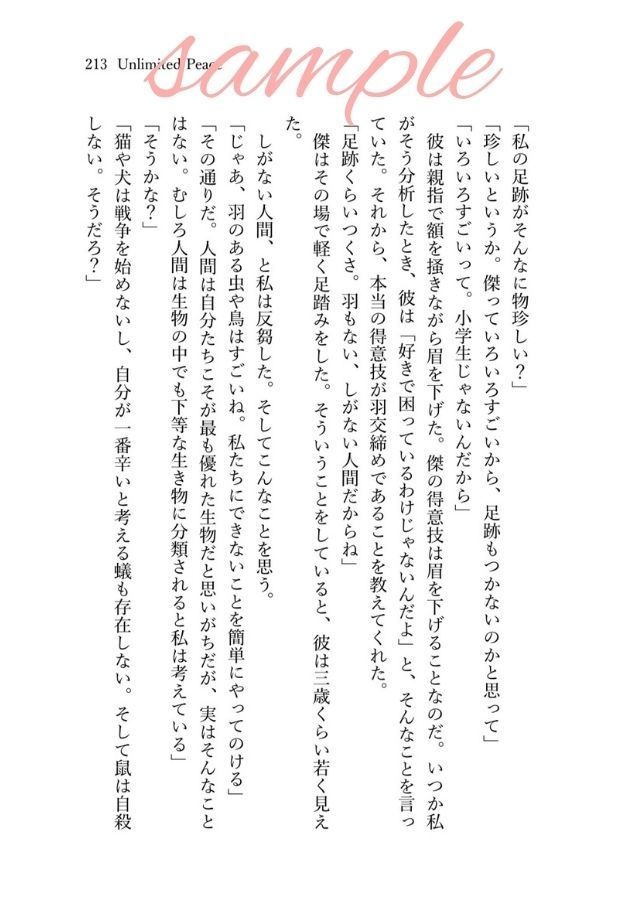 sample
213 Unlimited Peace
「私の足跡がそんなに物珍しい？」
「珍しいというか。傑っていろいろすごいから、足跡もつかないのかと思って」
「いろいろすごいって。小学生じゃないんだから」
彼は親指で額を掻きながら眉を下げた。傑の得意技は眉を下げることなのだ。いつか私
がそう分析したとき、彼は「好きで困っているわけじゃないんだよ」と、そんなことを言っ
ていた。それから、本当の得意技が羽交締めであることを教えてくれた。
「足跡くらいつくさ。羽もない、しがない人間だからね」
傑はその場で軽く足踏みをした。そういうことをしていると、彼は三歳くらい若く見え
た。
しがない人間、と私は反芻した。そしてこんなことを思う。
「じゃあ、羽のある虫や鳥はすごいね。私たちにできないことを簡単にやってのける」
「その通りだ。人間は自分たちこそが最も優れた生物だと思いがちだが、実はそんなこと
はない。むしろ人間は生物の中でも下等な生き物に分類されると私は考えている」
「そうかな？」
「猫や犬は戦争を始めないし、自分が一番辛いと考える蟻も存在しない。そして鼠は自殺
しない。そうだろ？」